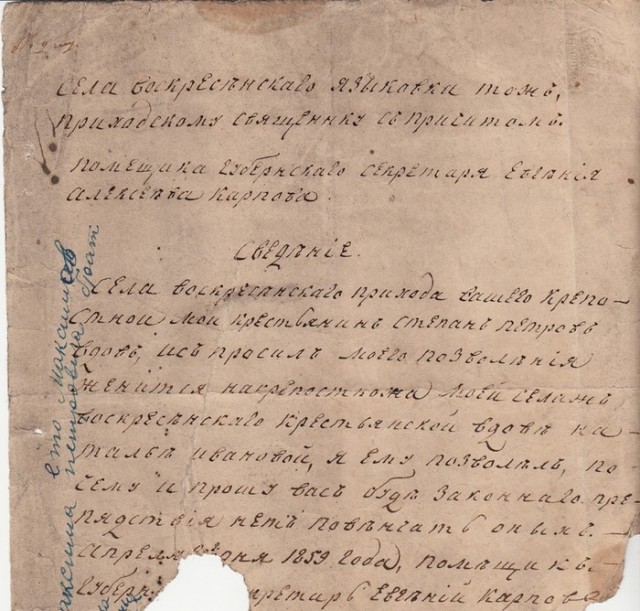 села воскресѣнскаго языковки тожъ,
приходскому священнику съ причтомъ.
помещика губернскаго секретаря евгѣнія
алексѣева карпова.
сведѣніе.
села воскресѣнскаго прихода вашего крепо-
стной мой крестьянинъ степанъ петровъ
вдовъ, испросилъ моего позволѣнія
женится на крепостной моей села жъ
воскресѣнскаго крестьянской вдовѣ на-
тальѣ ивановой, я ему позволѣлъ, по
сему и прошу васъ буде законнаго пре-
пядствія нетъ повѣнчать оныхъ.
апреля дня 1859 года, помѣщикъ
губерн секретарь евгѣній карповъ
это максимов
петровича брат